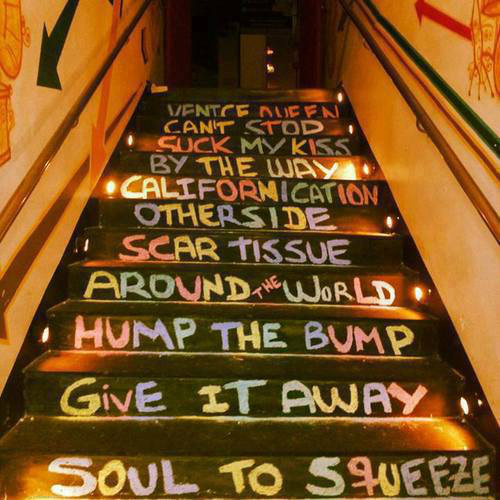 VENICE QUEEN
CAN'T STOP
SUCK MY KISS
BY THE WAY
CALIFORNICATION
OTHERSIDE
SCAR TISSUE
AROUND THE WORLD
HUMP THE BUMP
GIVE IT AWAY
SOUL TO SQUEEZE